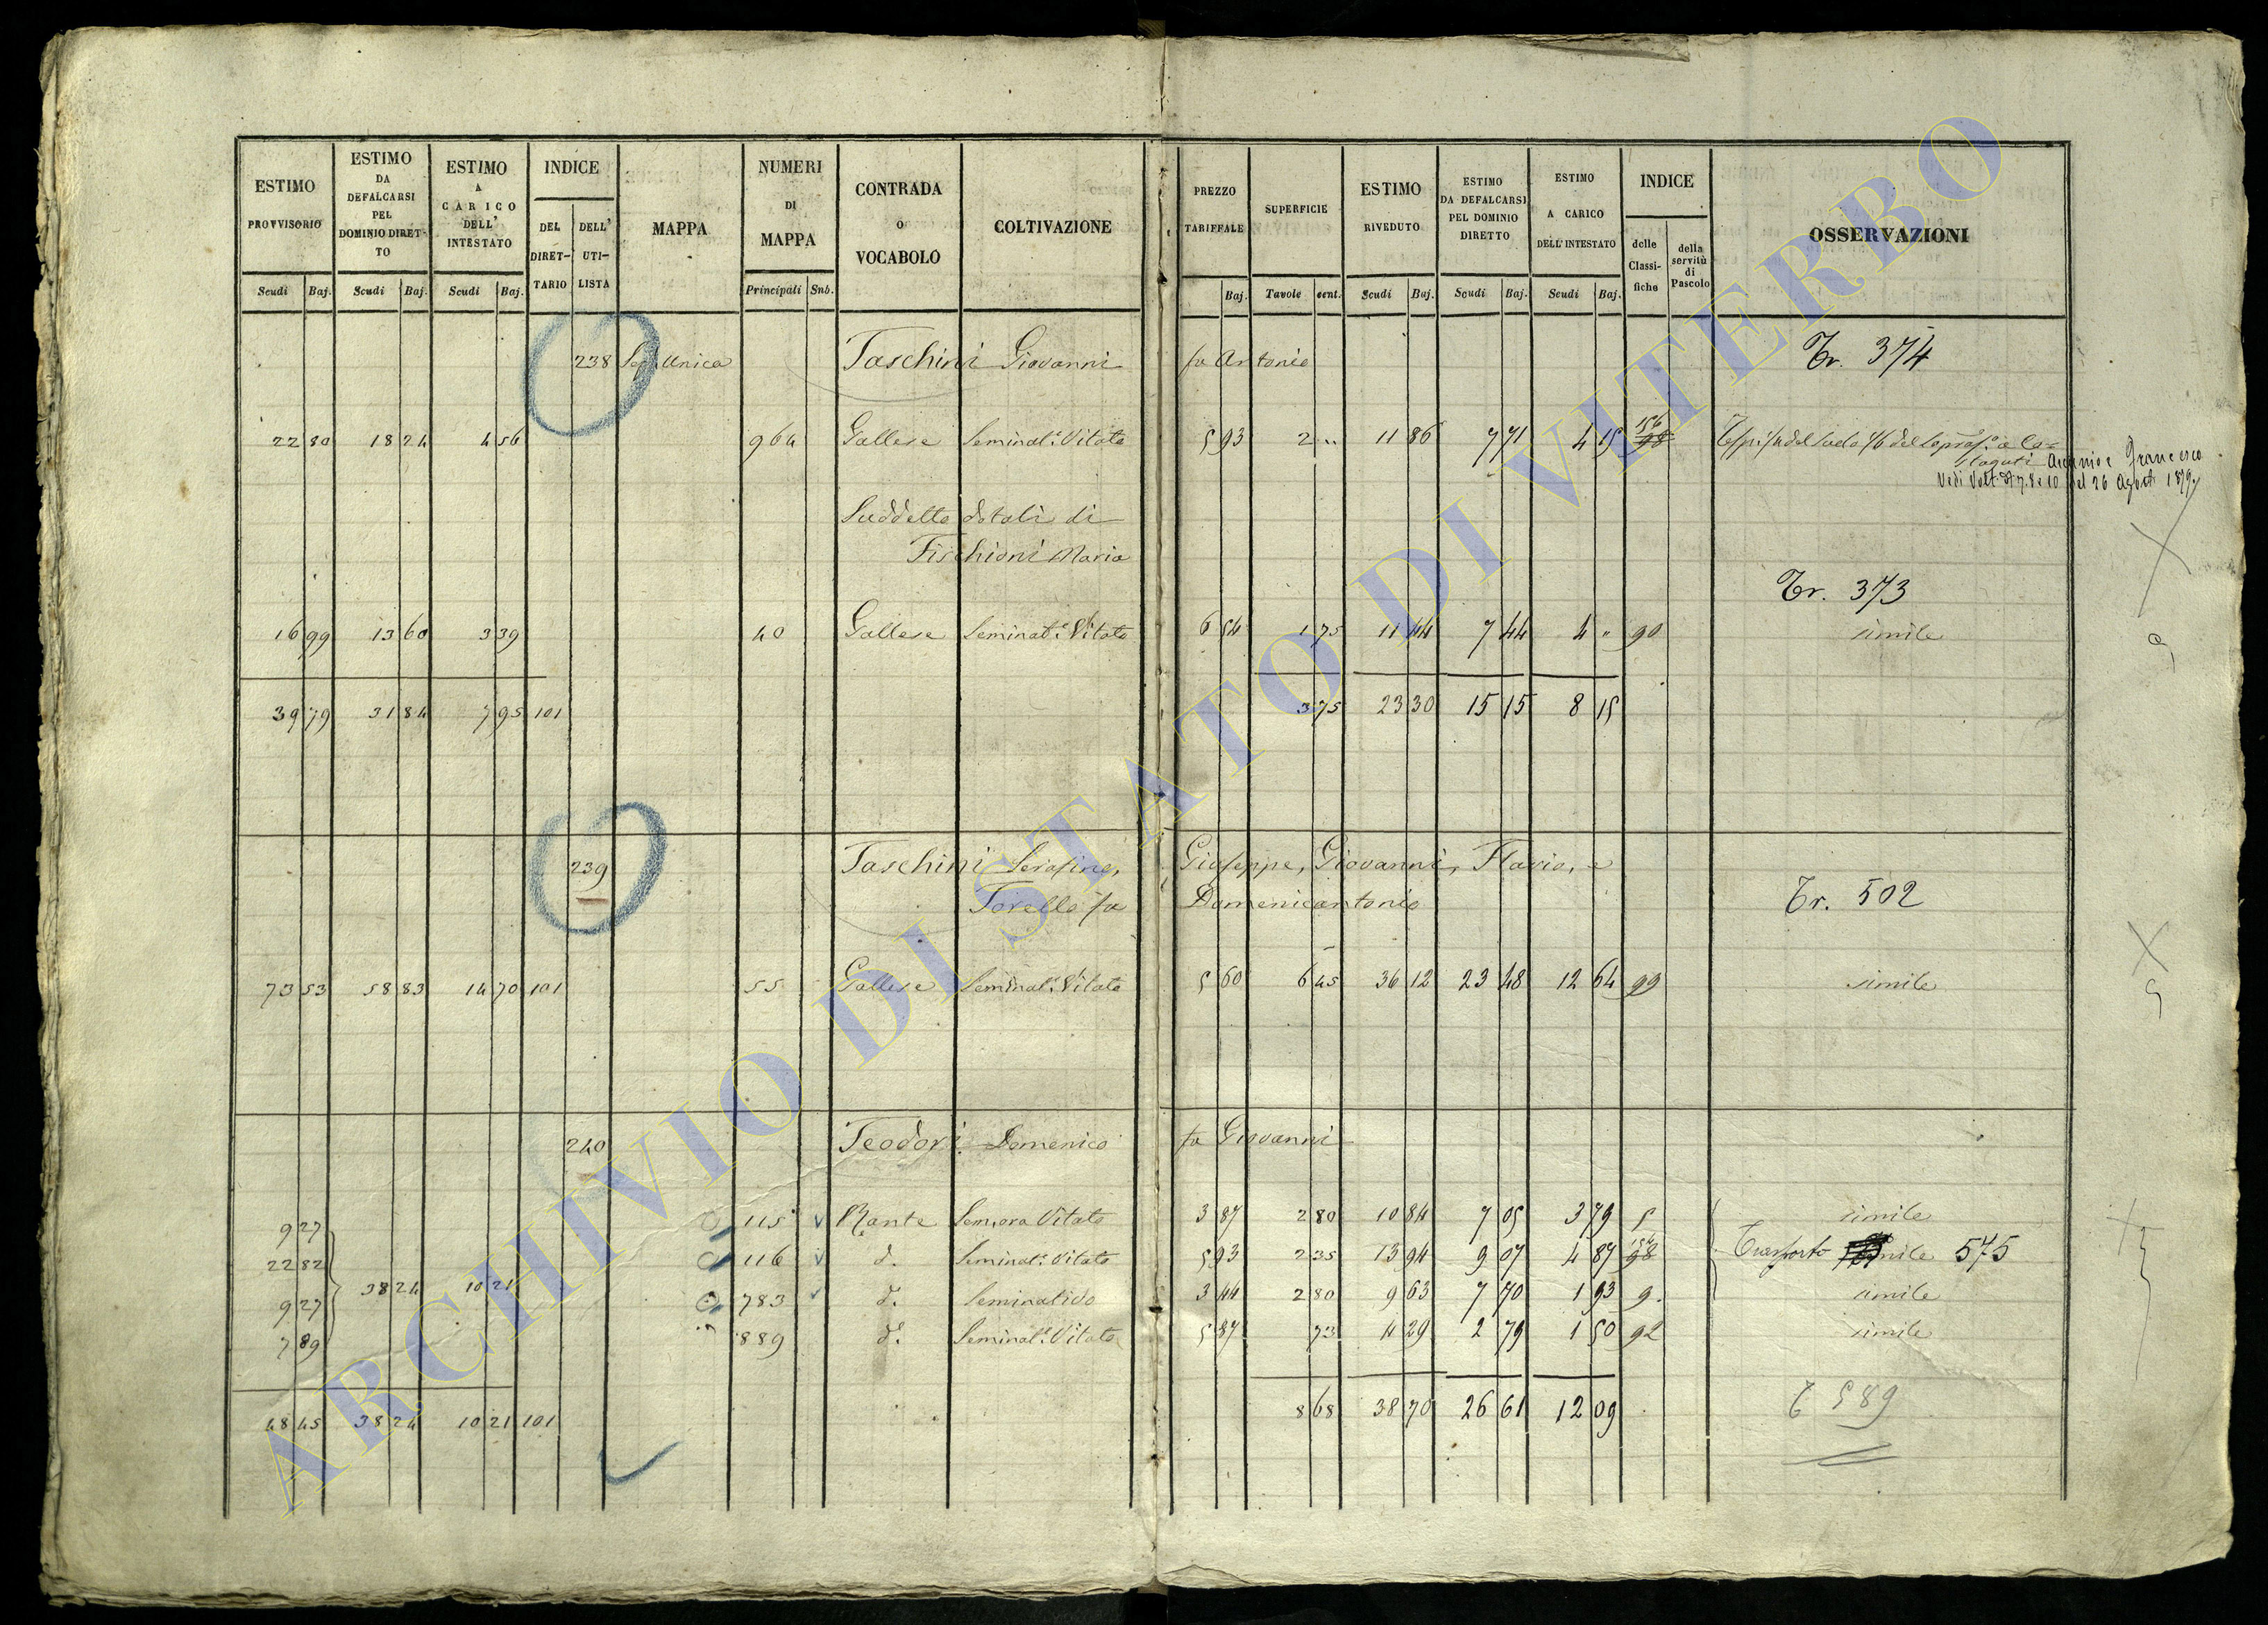 ESTIMO PROVVISORIO
ESTIMO DA DEFALCARSI PEL DOMINIO DIRETTO
ESTIMO A CARICO DELL' INTESTATO
INDICE
DEL DIRETTARIO
DELL' UTILISTA
MAPPA
NUMERI DI MAPPA
CONTRADA O VOCABOLO
COLTIVAZIONE
PREZZO TARIFFALE
SUPERFICIE
ESTIMO RIVEDUTO
ESTIMO DA DEFALCARSI PEL DOMINIO DIRETTO
ESTIMO A CARICO DELL' INTESTATO
INDICE
delle Classifiche
della servitù di Pascolo
OSSERVAZIONI
Scudi Baj. Scudi Baj. Scudi Baj. Principali Sub. Baj. Tavole cent. Scudi Baj. Scudi Baj. Scudi Baj.
238 Sez. Unica Taschini Giovanni fu Antonio Tr. 374
22 80 18 24 4 56 964 Gallese Seminat. Vitato 5 93 2 " 11 86 7 71 4 15 156 98
Ascanio e Francesco
del 26 Agosti 1879
Suddetto dotali di
Fischioni Maria
Tr. 373
16 99 13 60 3 39 40 Gallese Seminat. Vitato 6 54 1 75 11 44 7 44 4 " 90 simile
39 79 31 84 7 95 101 3 75 23 30 15 15 8 15
239 Taschini Serafino, Giuseppe, Giovanni, Flavio, e
Torello fu Domenicantonio Tr. 502
73 53 58 83 14 70 101 55 Gallese Seminat. Vitato 5 60 6 45 36 12 23 48 12 64 99 simile
240 Teodori Domenico fu Giovanni
9 27 115 Rante Sem. ora Vitato 3 87 2 80 10 84 7 05 3 79 5 simile
22 82 116 d. Seminat. Vitato 5 93 2 35 13 94 9 07 4 87 98 Trasporto simile 575
38 24 10 21
9 27 783 d. Seminativo 3 44 2 80 9 63 7 70 1 93 9. simile
7 89 889 d. Seminat. Vitato 5 87 73 4 29 2 79 1 50 92 simile
48 45 38 24 10 21 101 8 68 38 70 26 61 12 09 T 589
ARCHIVIO DI STATO DI VITERBO